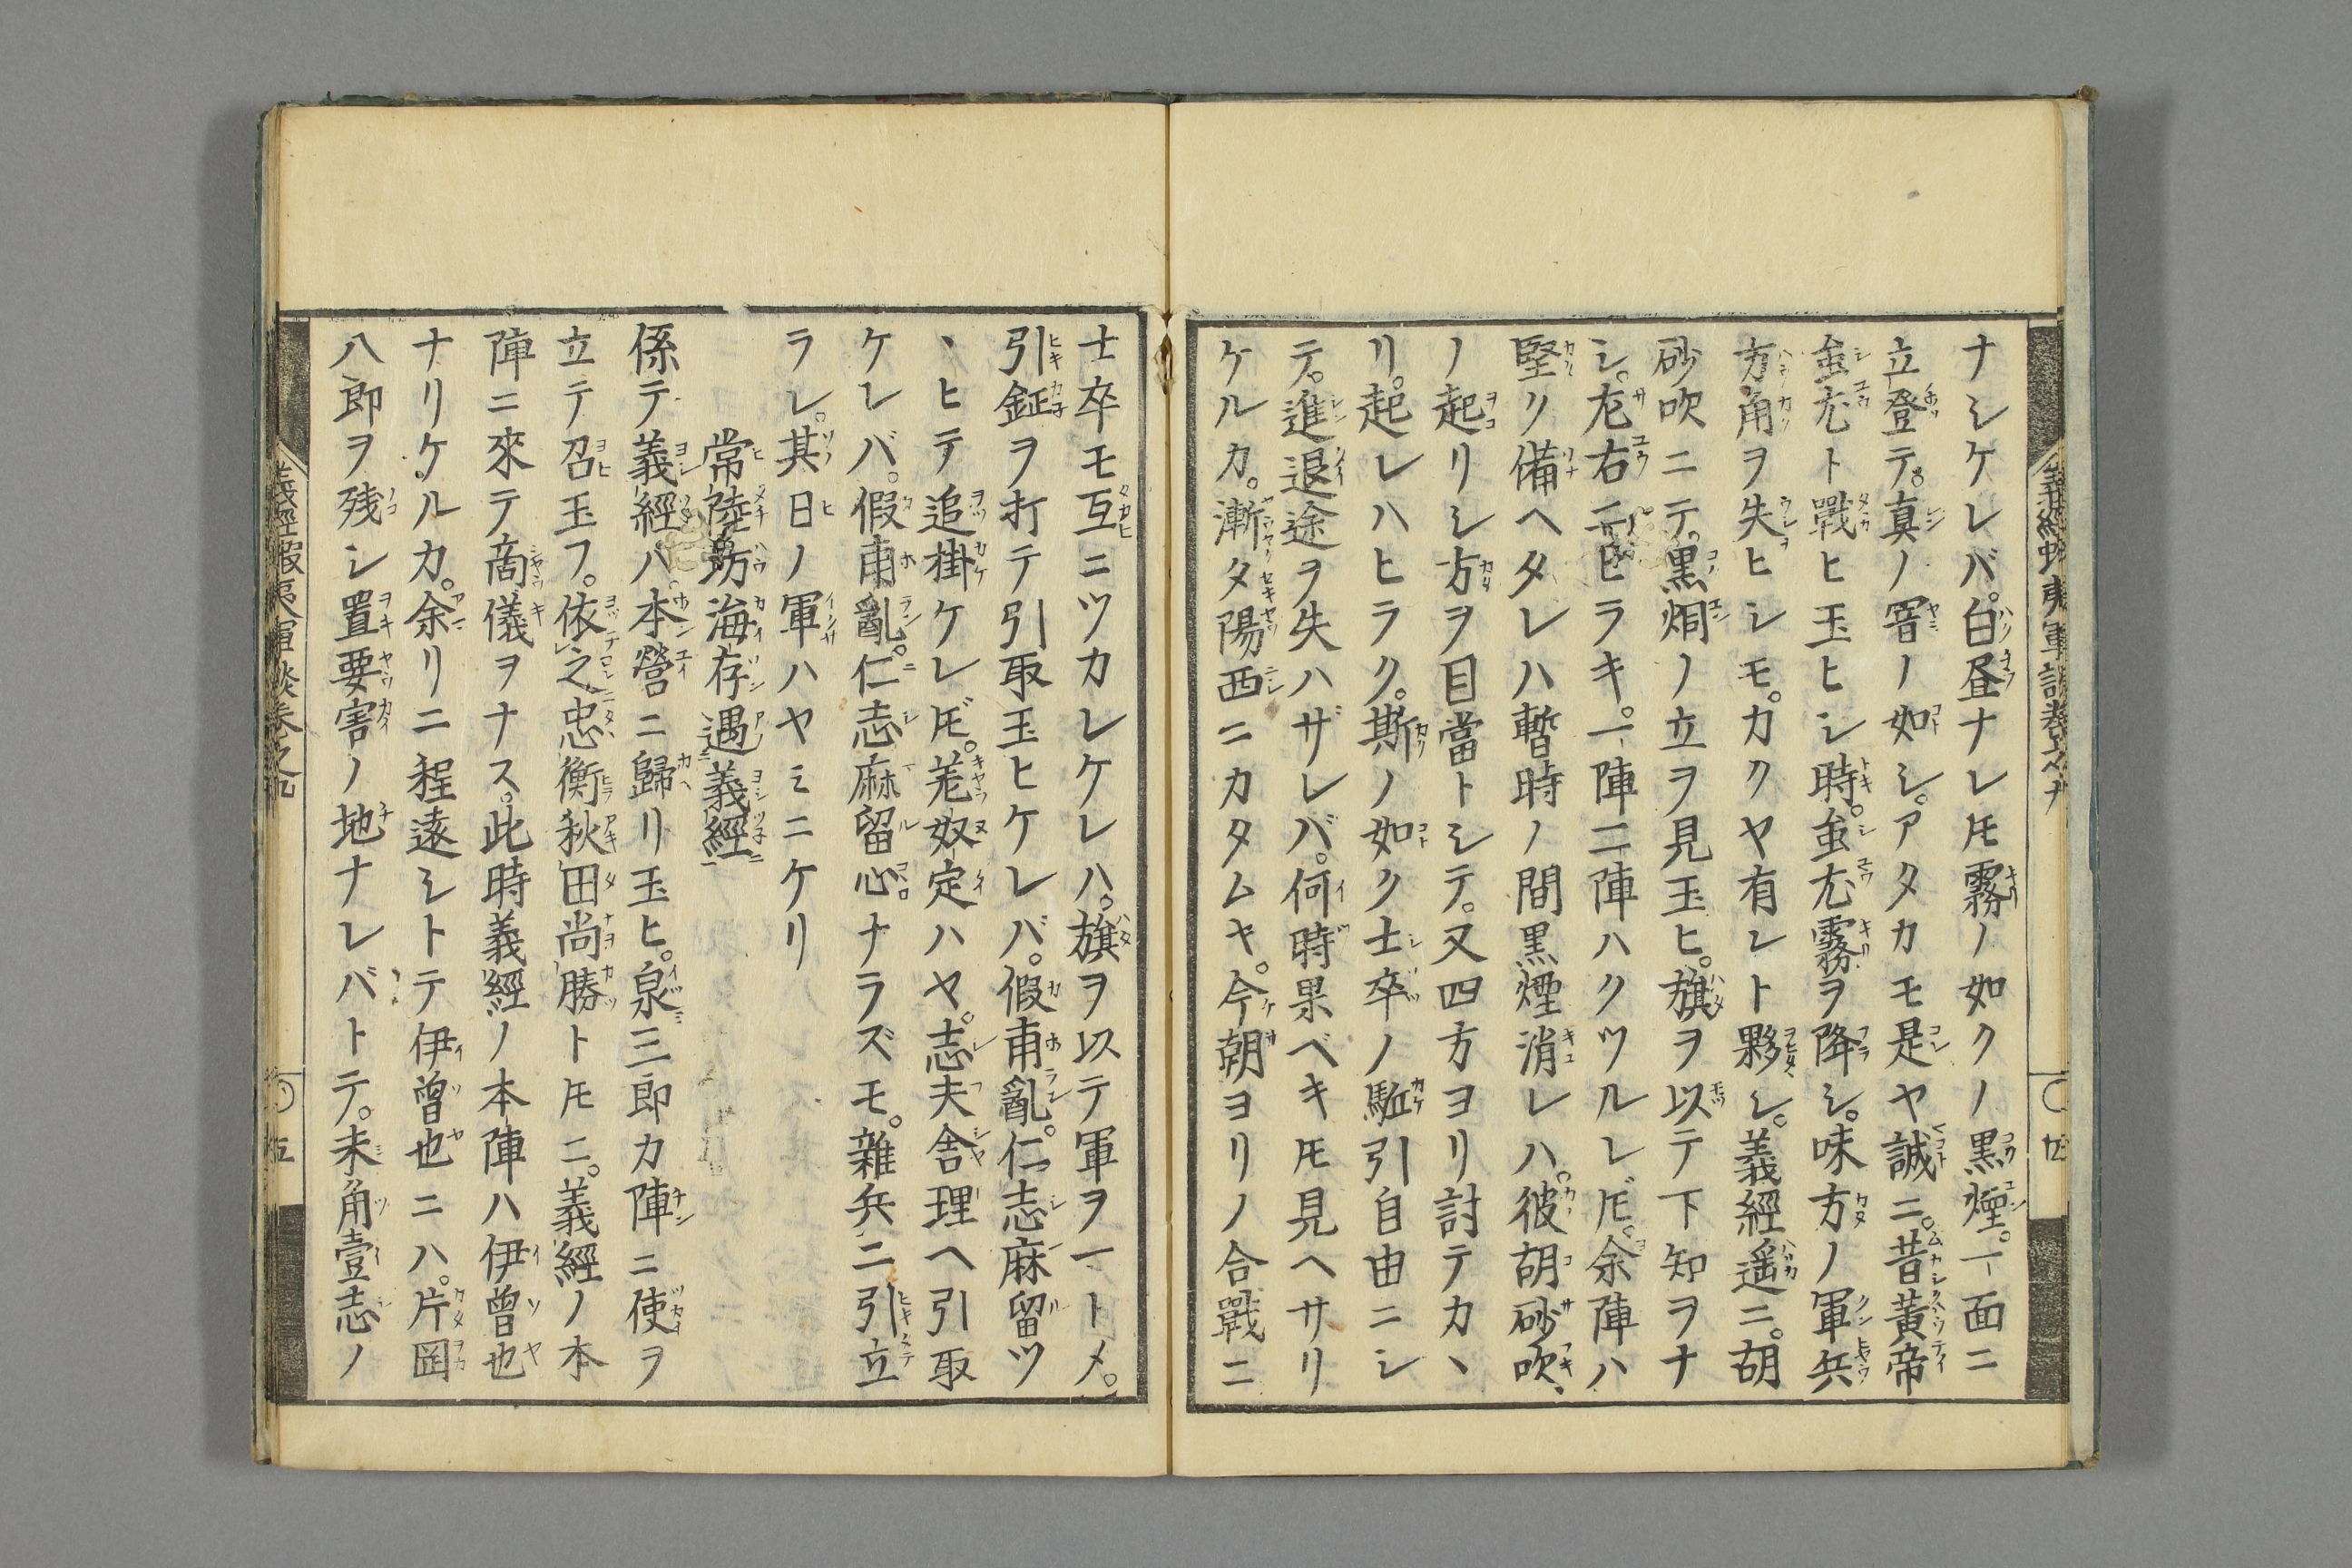 ナシケレバ。白昼ナレ𪜈霧ノ如クノ黒煙。一面ニ
立登テ。真ノ窨ノ如シ。アタカモ是ヤ誠ニ。昔黄帝
蚩尤ト戰ヒ玉ヒシ時。蚩尤霧ヲ降シ。味方ノ軍兵
方角ヲ失ヒシモ。カクヤ有レト夥シ。義經遥ニ。胡
砂吹ニテ。黒烟ノ立ヲ見玉ヒ。旗ヲ以テ下知ヲナ
シ。左右ニヒラキ。一陣二陣ハクツルレド𪜈。余陣ハ
堅ク備ヘタレハ暫時ノ間黒煙消レハ。彼胡砂吹、
ノ起リシ方ヲ目當トシテ。又四方ヨリ討テカヽ
リ。起レハヒラク。斯ノ如ク士卒ノ駈引自由ニシ
テ。進退途ヲ失ハザレバ。何時果ベキ𪜈見ヘサリ
ケルカ。漸夕陽西ニカタムヤ。今朝ヨリノ合戰ニ
士卒モ互ニツカレケレハ。旗ヲ以テ軍ヲ一トメ。
引鉦ヲ打テ引取玉ヒケレバ。假甫亂。仁志麻留ツ
ヽヒテ追掛ケレ𪜈。羗奴定ハヤ。志夫舎理ヘ引取
ケレバ。假甫亂。仁志麻留心ナラズモ。雜兵ニ引立
ラレ。其日ノ軍ハヤミニケリ
常陸坊海存遇義經
係テ義經ハ。本營ニ歸リ玉ヒ。泉三郎カ陣ニ使ヲ
立テ召玉フ。依之忠衡秋田尚勝ト𪜈ニ。義經ノ本
陣ニ來テ商儀ヲナス。此時義經ノ本陣ハ伊曽也
ナリケルカ。余リニ程遠シトテ伊曽也ニハ。片岡
八郎ヲ残シ置要害ノ地ナレバトテ。未角壹志ノ
義經蝦夷軍談巻之九
五